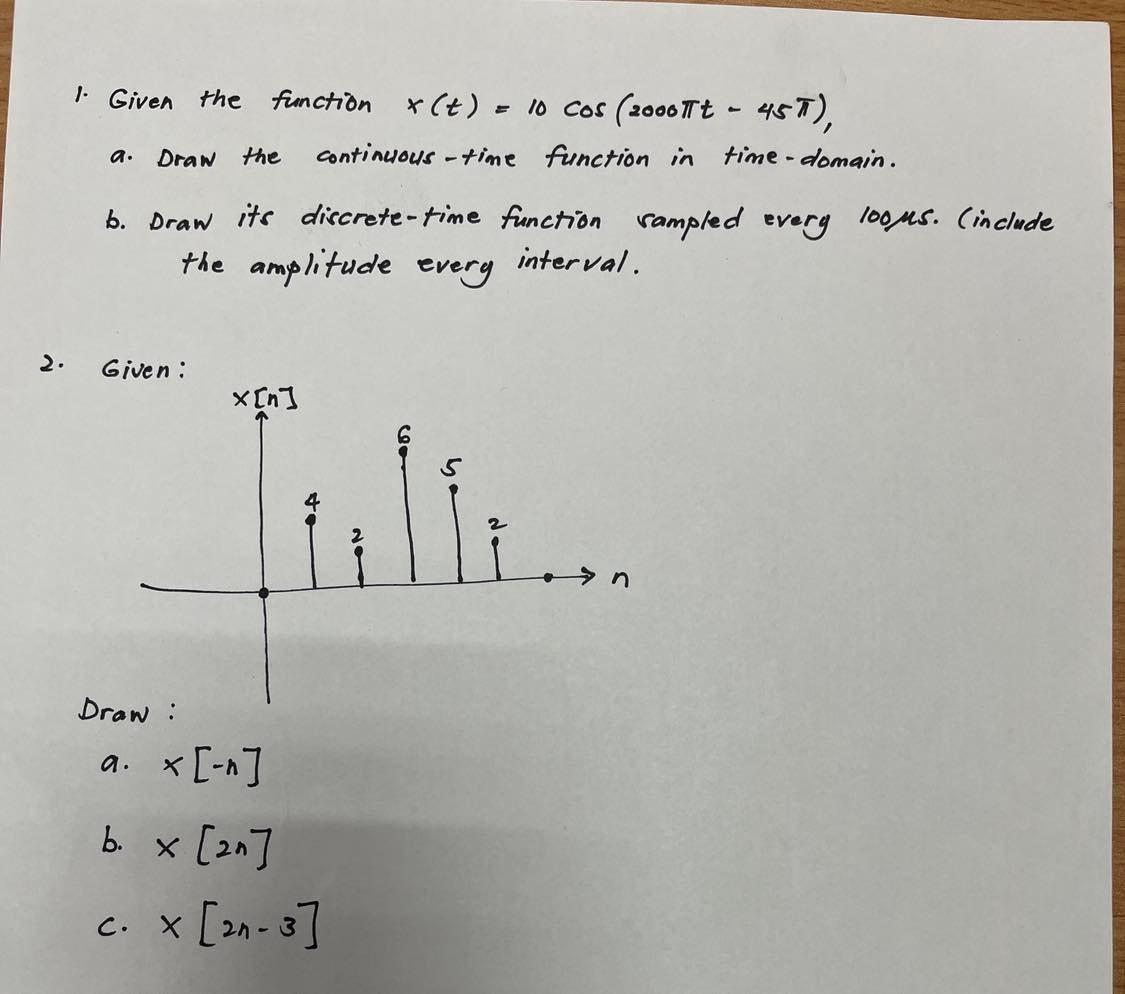 1. Given the function x(t) = 10 cos (2000πt - 45π),
a. Draw the continuous-time function in time-domain.
b. Draw its discrete-time function sampled every 100μs. (include
the amplitude every interval.
2. Given:
x[n]
6
5
4
2
2
n
Draw:
a. x[-n]
b. x[2n]
c. x[2n-3]